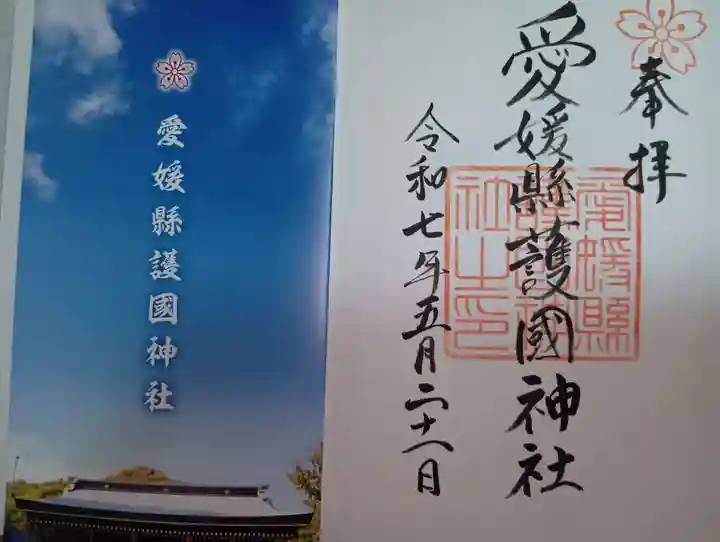 奉拝
愛媛縣護國神社
愛媛縣
護國神
社之印
令和七年五月二十八日
愛媛縣護國神社